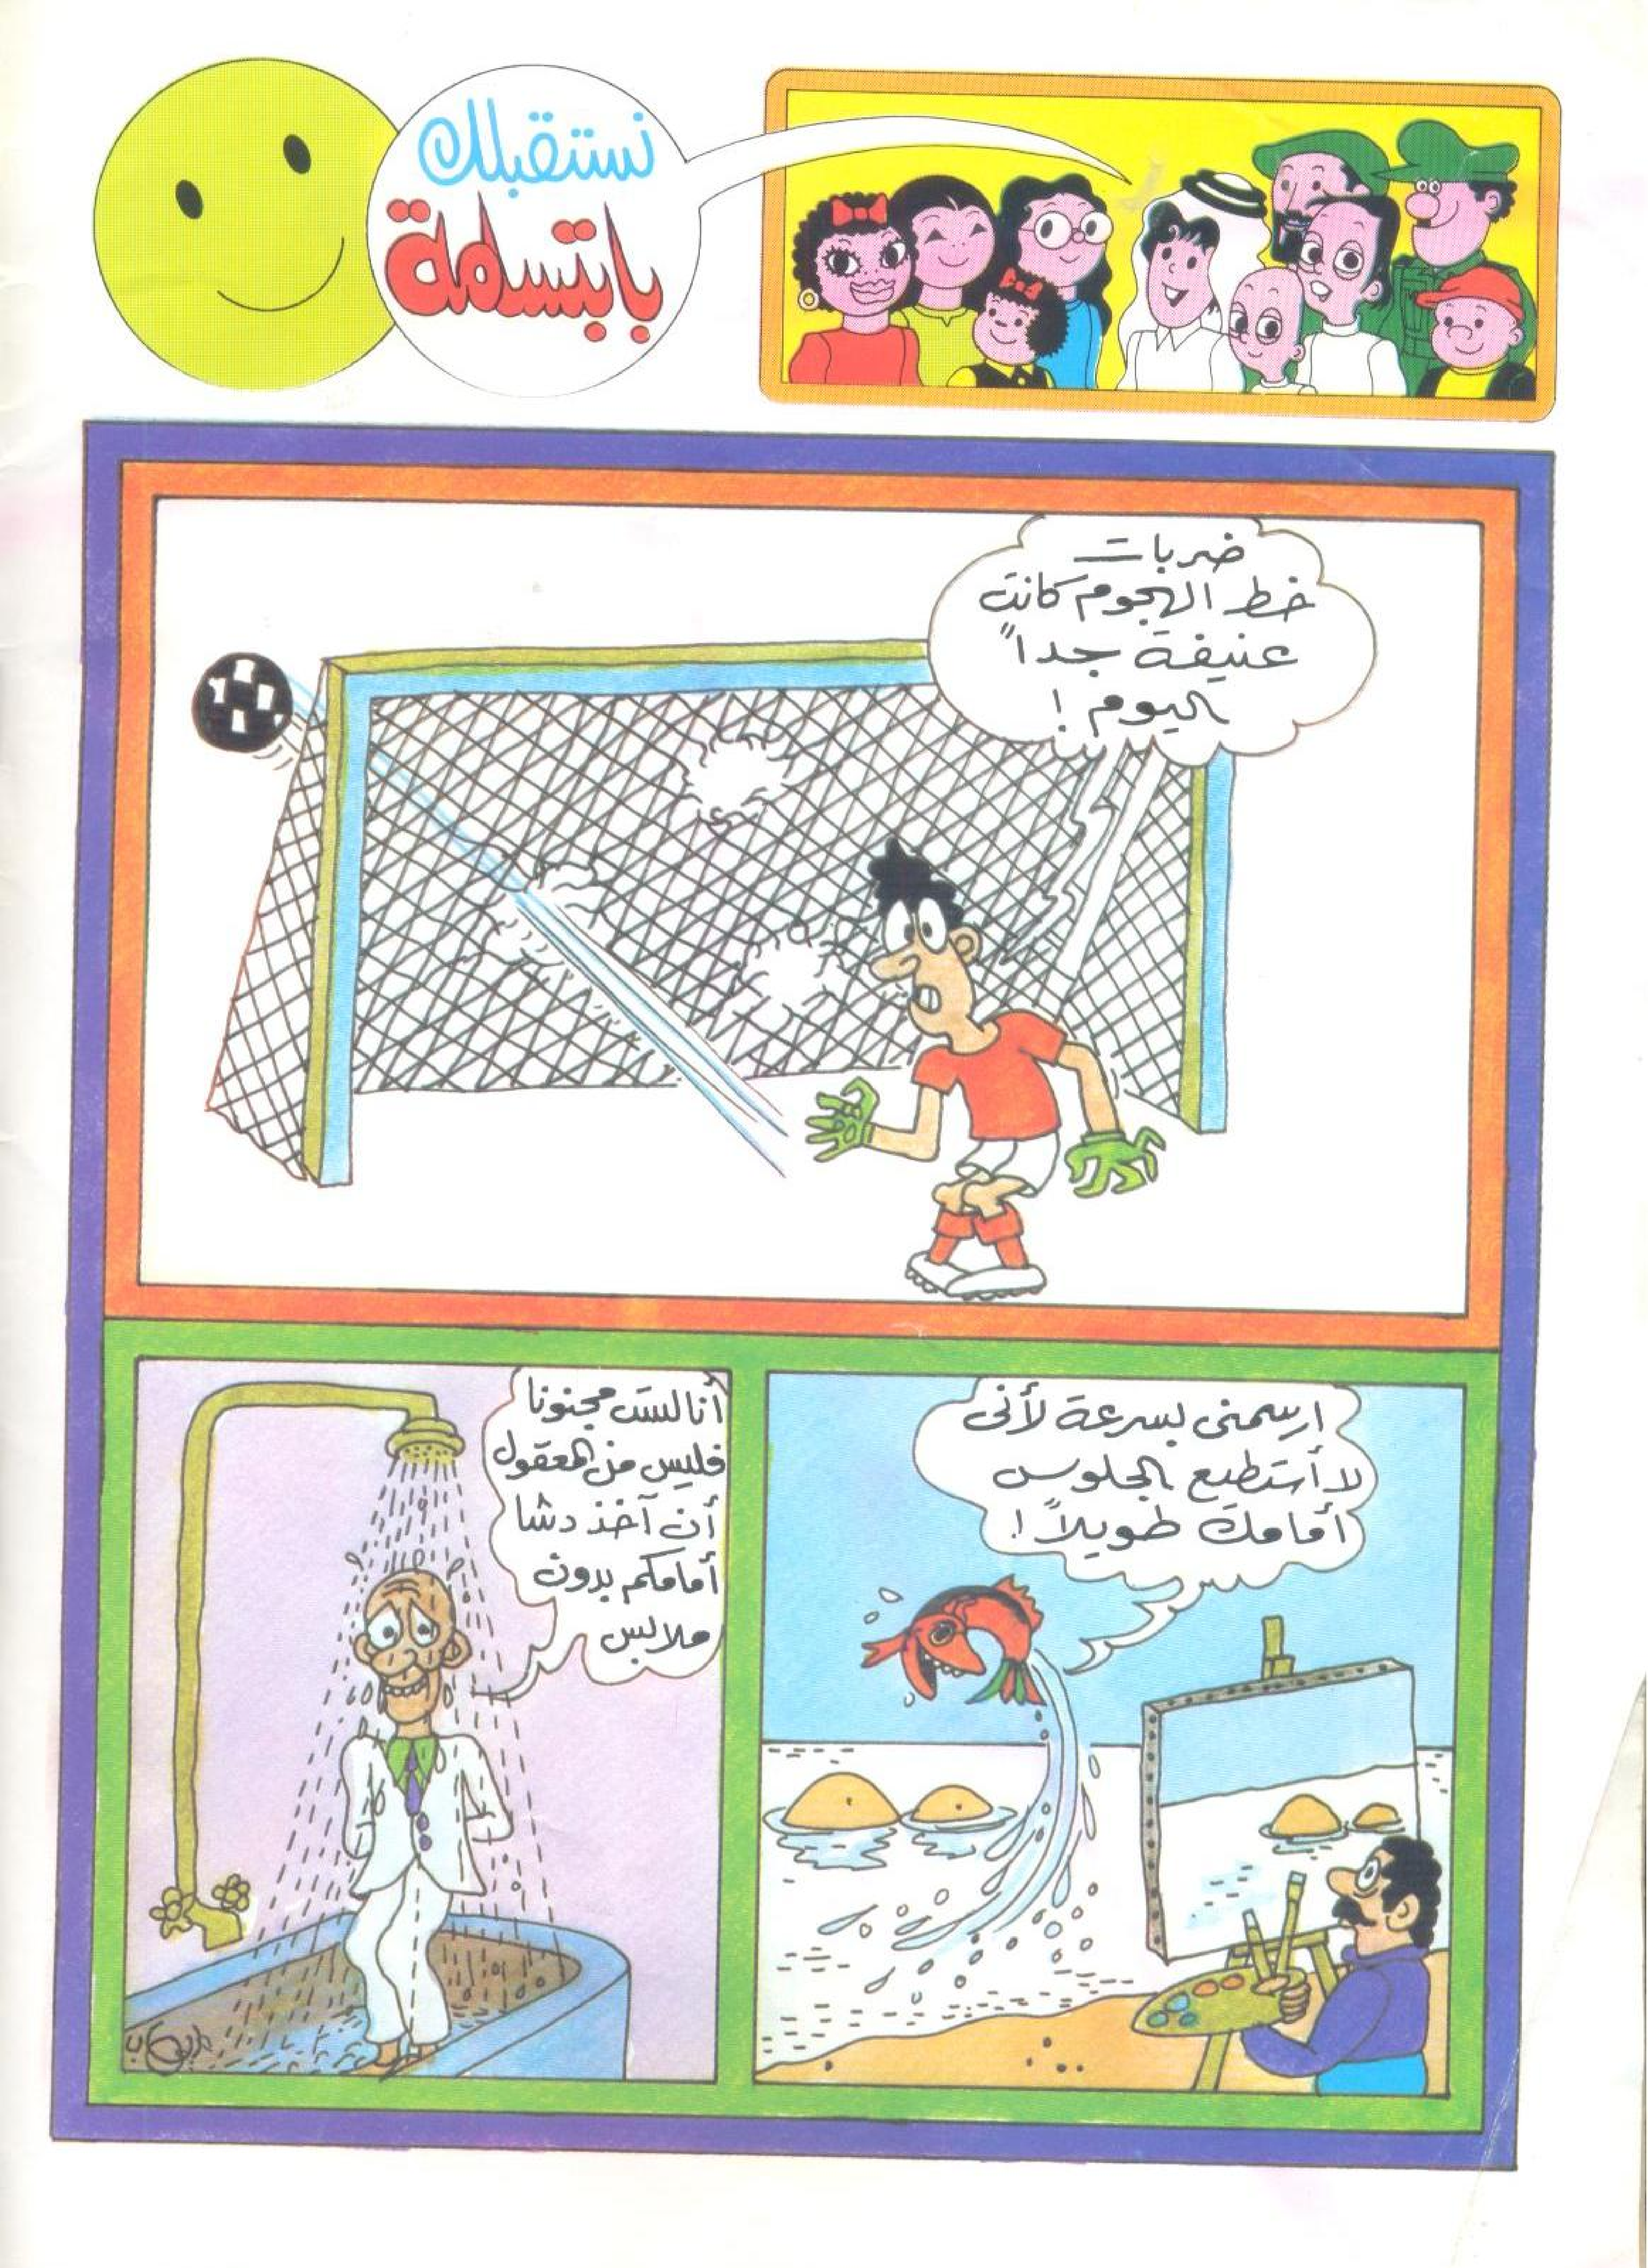 نستقبلك
بابتسامة
ضربات
خط الهجوم كانت
عنيفة جداً
اليوم !
ارسمنى بسرعة لأنى
لا أستطيع الجلوس
أمامك طويلاً !
أنا لست مجنونا
فليس من المعقول
أن آخذ دشا
أمامكم بدون
ملابس